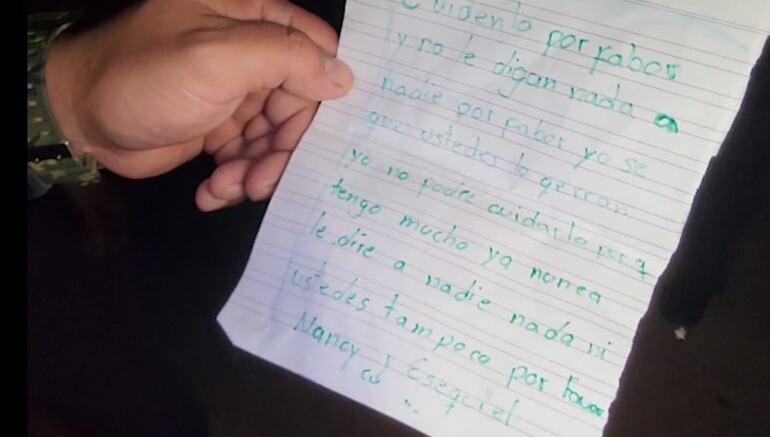 Cuidenlo por fabor
y no le digan nada a
nadie por fabor yo se
que ustedes lo qerran
yo no podre cuidarlo por q
tengo mucho ya nunca
le dire a nadie nada ni
ustedes tampoco por favor
Nancy y Esequiel